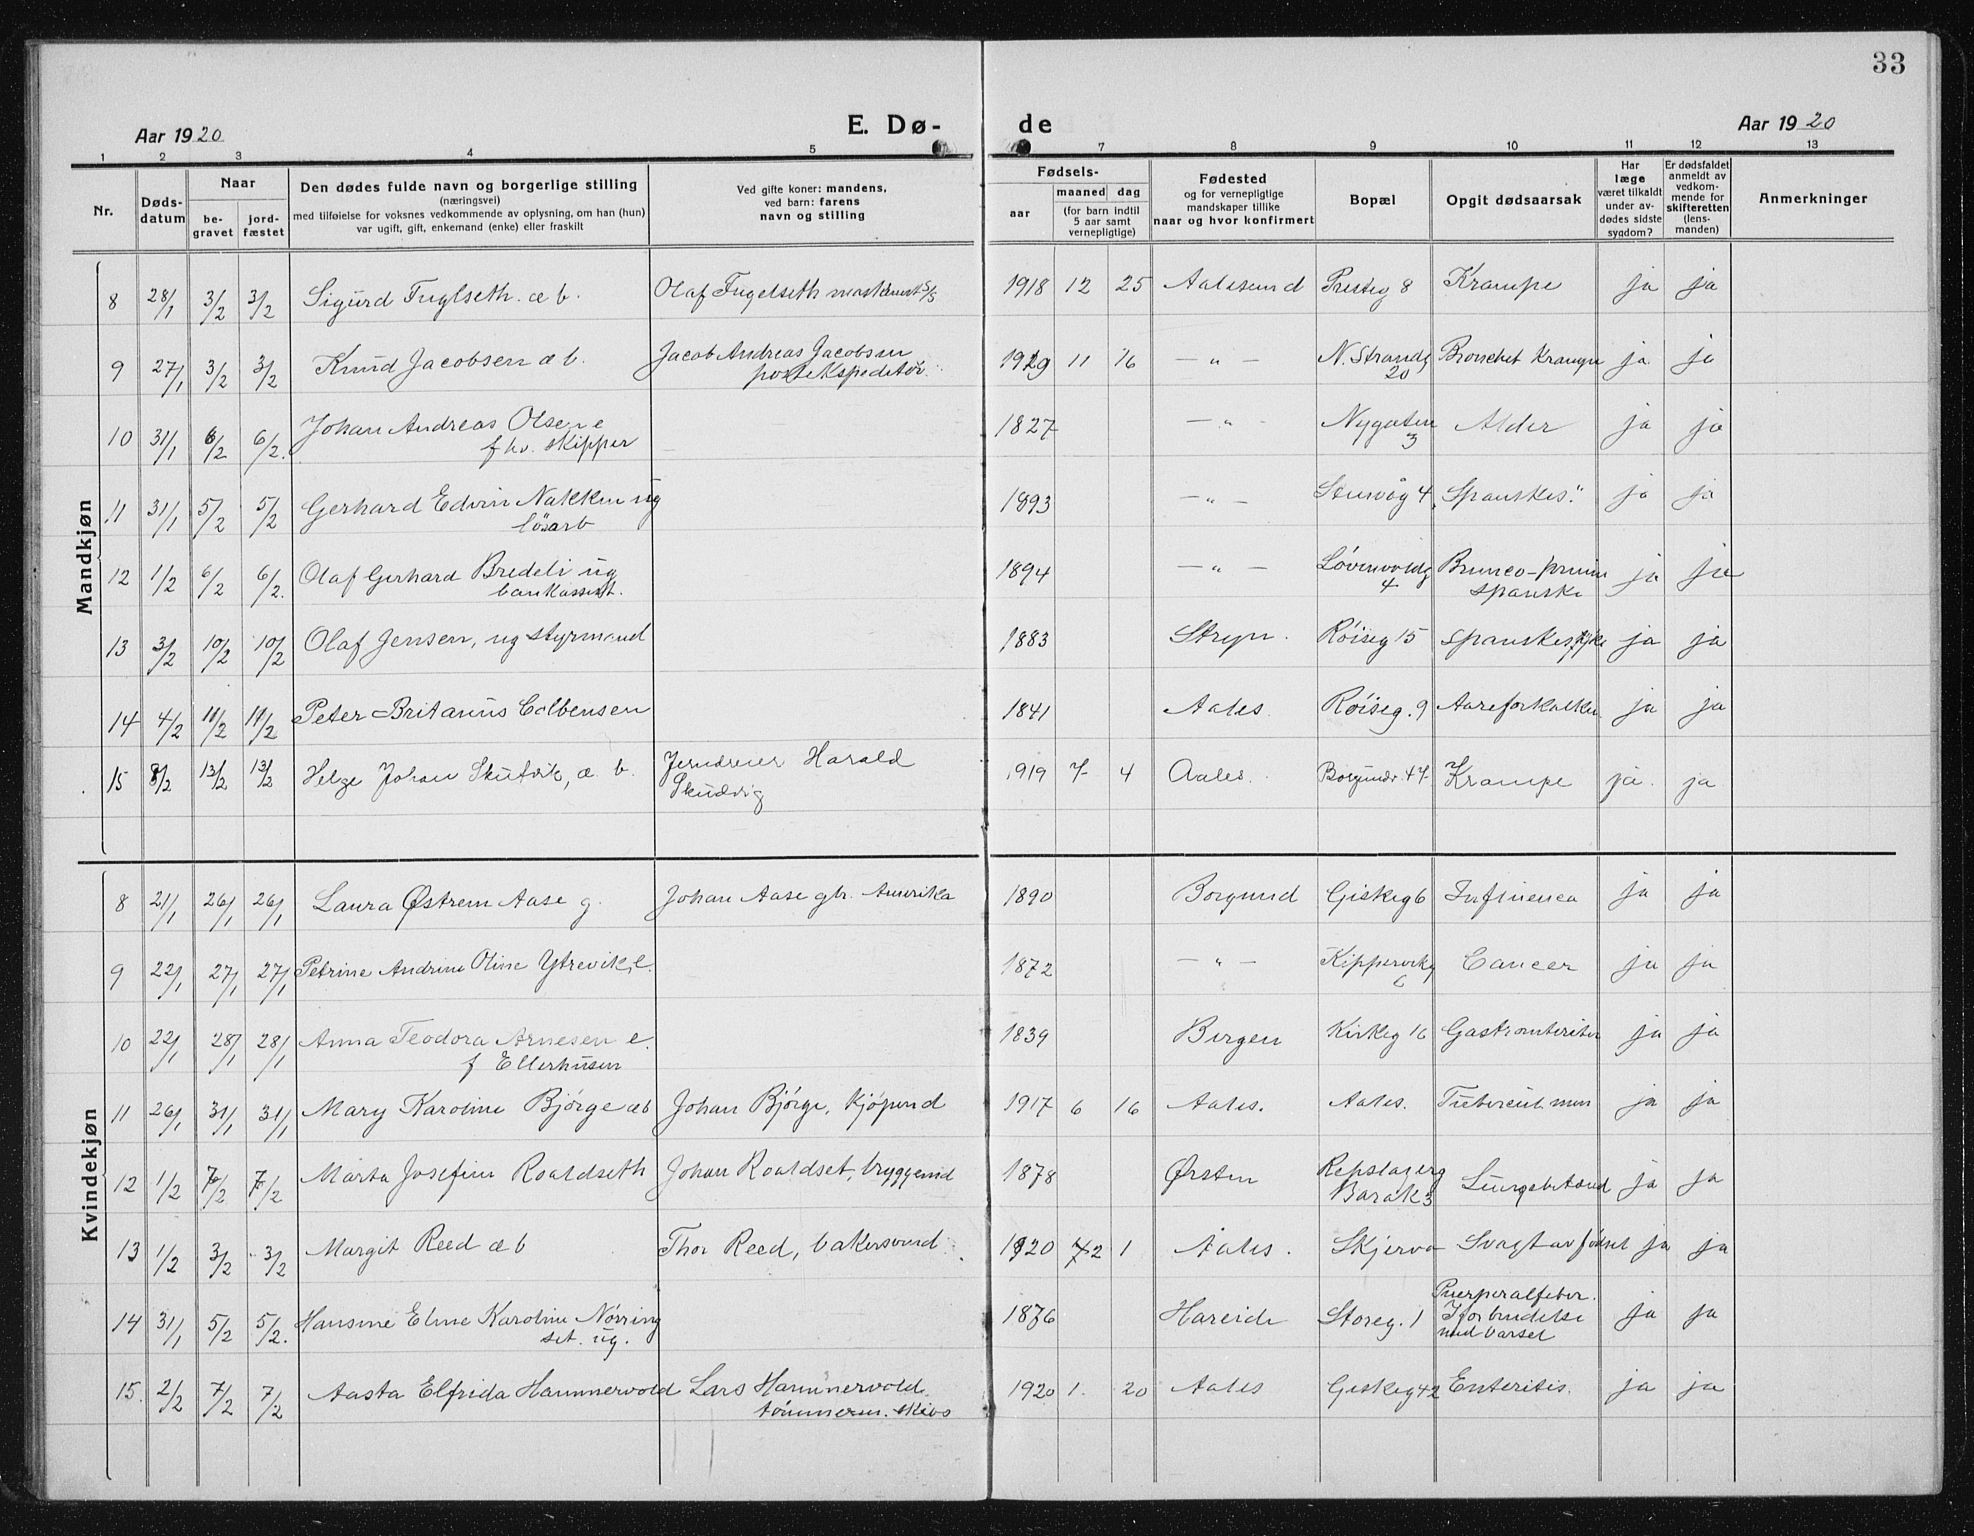 33
Aar 1920 E. Dø- de Aar 1920
1 2 3 4 5 7 8 9 10 11 12 13
Nr. Døds-datum Naar be-gravet jord-fæstet Den dødes fulde navn og borgerlige stilling (næringsvei) med tilføielse for voksnes vedkommende av oplysning, om han (hun) var ugift, gift, enkemand (enke) eller fraskilt Ved gifte koner: mandens, ved barn: farens navn og stilling Fødsels- aar maaned dag (for barn indtil 5 aar samt vernepligtige) Fødested og for vernepligtige mandskaper tillike naar og hvor konfirmert Bopæl Opgit dødsaarsak Har læge været tilkaldt under av-dødes sidste sygdom? Er dødsfaldet anmeldt av vedkom-mende for skifteretten (lens-manden) Anmerkninger
Mandkjøn
8 28/1 3/2 3/2 Sigurd Fuglseth. æb. Olaf Fugelseth maskinist 1918 12 25 Aalesund Presteg 8 Krampe ja ja
9 27/1 3/2 3/2 Knud Jacobsen æb. Jacob Andreas Jacobsen 1919 11 16 — " — N. Strandg Bronchit Krampe ja ja
postekspeditør. 20
10 31/1 6/2 6/2. Johan Andreas Olsen e 1827 — " — Nygaten Alder ja ja
fhv. skipper 3
11 31/1 5/2 5/2 Gerhard Edvin Nakken ug 1893 — " — 4 "Spanskes." ja ja
løsarb
12 1/2 6/2 6/2. Olaf Gerhard Bredeli ug 1894 — " — Løvenvoldg ja ja
bankassist. 4 spanske
13 3/2 10/2 10/2 Olaf Jensen, ug styrmand 1883 Stryn. Røiseg 15 spanskesyke ja ja
14 4/2 11/2 11/2 Peter Britanus Colbensen 1841 Aales. Røiseg. 9 Aareforkalkn. ja ja
15 8/2 13/2 13/2 Helge Johan Skutvik, æ. b. Jerndreier Harald 1919 7 4 Aales. Borgundv. 47 Krampe ja. ja
Skudvig
Kvindekjøn
8 21/1 26/1 26/1 Laura Østrem Aase g. Johan Aase gbr. Amerika 1890 Borgund Giskeg 6 Influenca ja ja
9 22/1 27/1 27/1 Petrine Andrine Oline Ytrevik, e. 1872 — " — Kippervikg Cancer ja ja
6
10 22/1 28/1 28/1 Anna Teodora Arnesen e. 1839 Bergen Kirkeg 16 Gastroenteriter ja ja
f Ellerhusen
11 26/1 31/1 31/1 Mary Karoline Bjørge æb Johan Bjørge, kjøpmd 1917 6 16 Aales. Aales. Tubercul. men ja ja
12 1/2 7/2 7/2 Marta Josefine Roaldseth Johan Roaldset, bryggemd 1878 Ørsten Repslagerg Lungebetænd ja ja
Barak 3
13 1/2 3/2 3/2 Margit Reed æb Thor Reed, bakersvend 1920 2 1 Aales. Skjerva Svagt av fødsel ja ja
14 31/1 5/2 5/2. Hansine Eline Karoline Nørring 1876 Hareide Storeg. 1 Puerperalfeber. ja ja
set. ug. I forbindelse
med barsel
15. 2/2 7/2 7/2 Aasta Elfrida Hammervold Lars Hammervold. 1920 1. 20 Aales Giskeg 42 Enteritis. ja ja
tømmerm. skibs